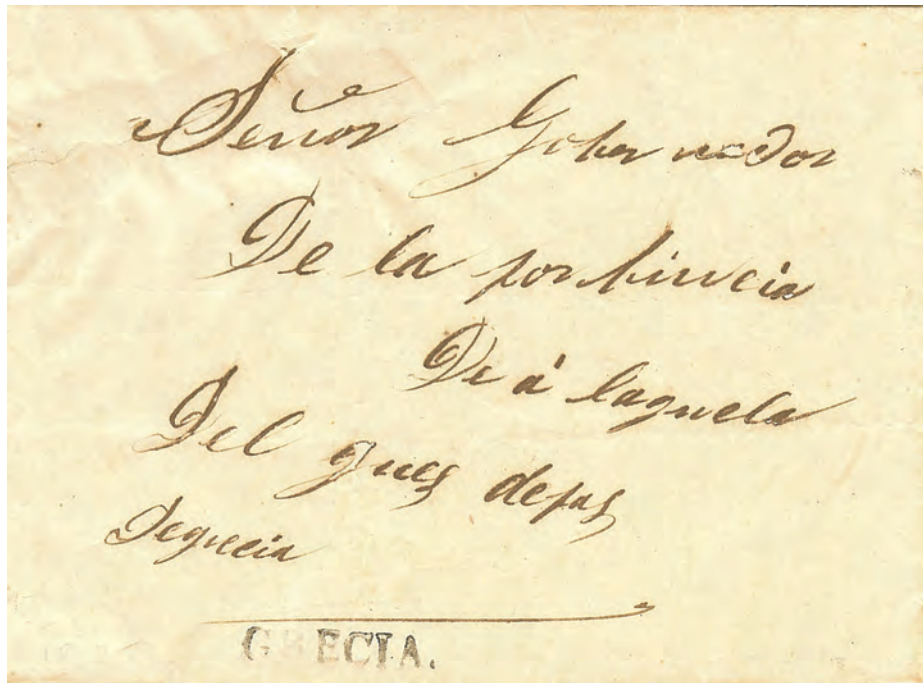 Señor Gobernador
De la porbincia
De á laguela
Del Jues depas
Degrecia
GRECIA.